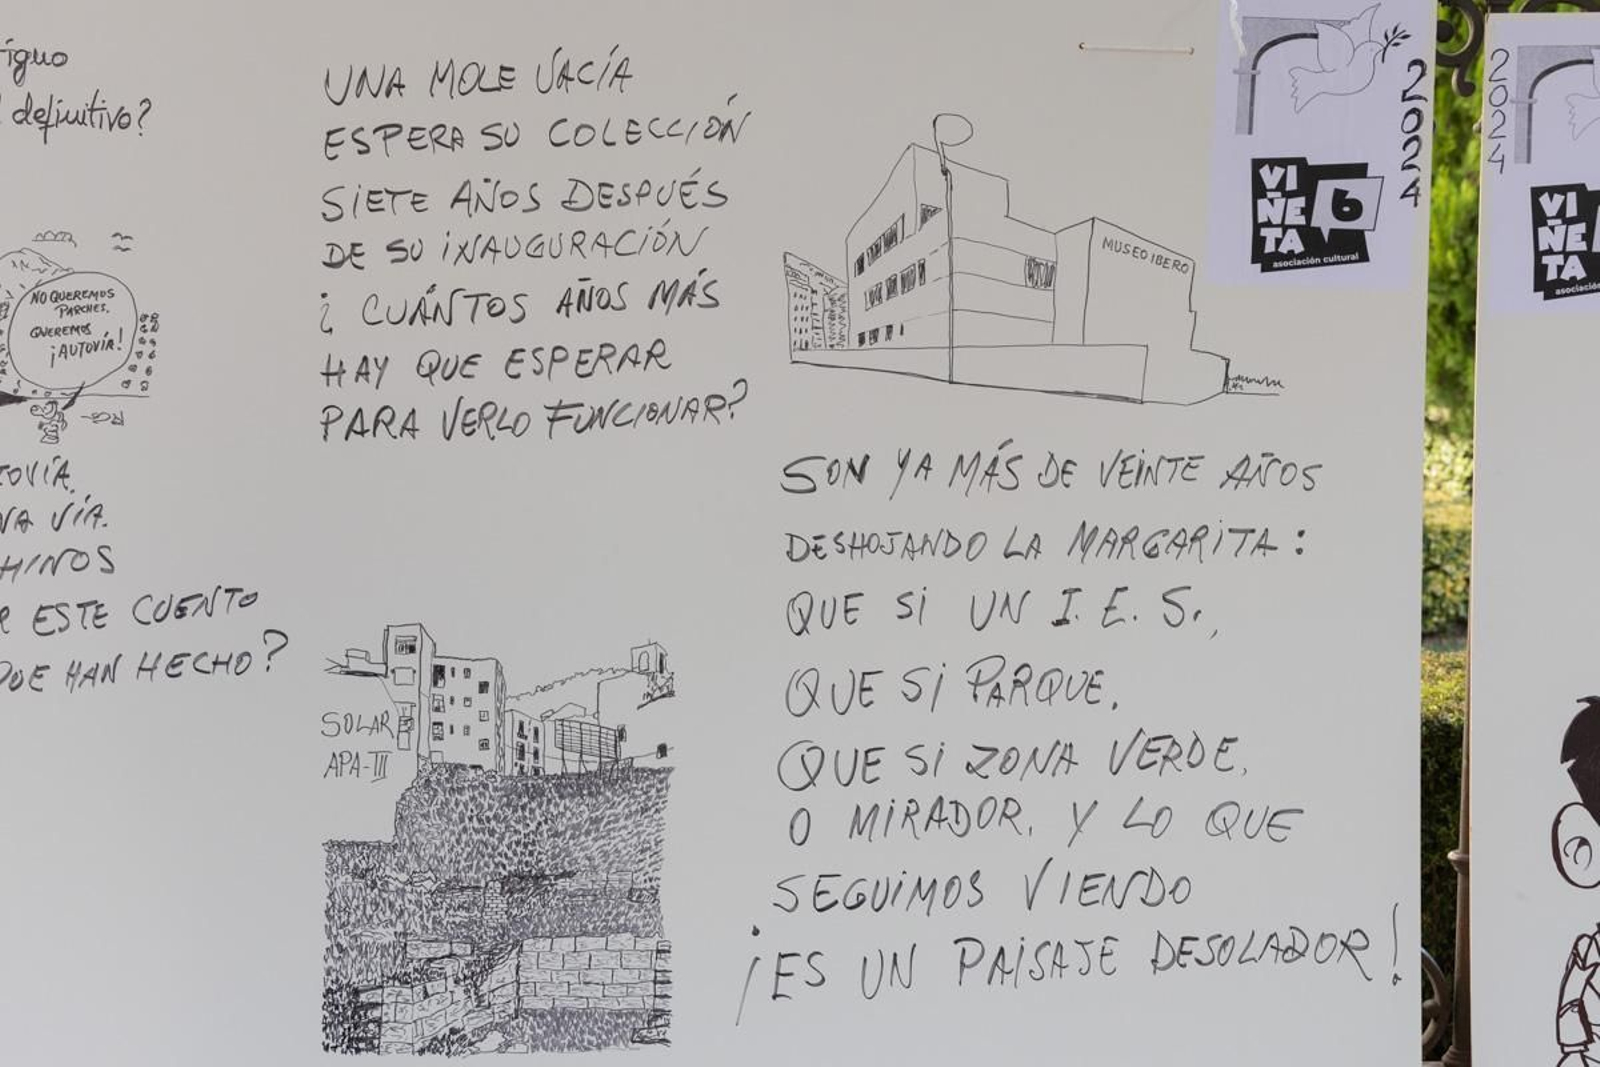 definitivo?
NO QUEREMOS
PARCHES.
QUEREMOS
¡AUTOVÍA!
VÍA.
ESTE CUENTO
HAN HECHO?
UNA MOLE VACÍA
ESPERA SU COLECCIÓN
SIETE AÑOS DESPUÉS
DE SU INAUGURACIÓN
¿CUÁNTOS AÑOS MÁS
HAY QUE ESPERAR
PARA VERLO FUNCIONAR?
MUSEO IBERO
SOLAR
APA-III
SON YA MÁS DE VEINTE AÑOS
DESHOJANDO LA MARGARITA:
QUE SI UN I.E.S.,
QUE SI PARQUE,
QUE SI ZONA VERDE,
O MIRADOR, Y LO QUE
SEGUIMOS VIENDO
¡ES UN PAISAJE DESOLADOR!
2024
VI
ÑE
TA
6
asociación cultural
2024
VI
ÑE
TA
asociación